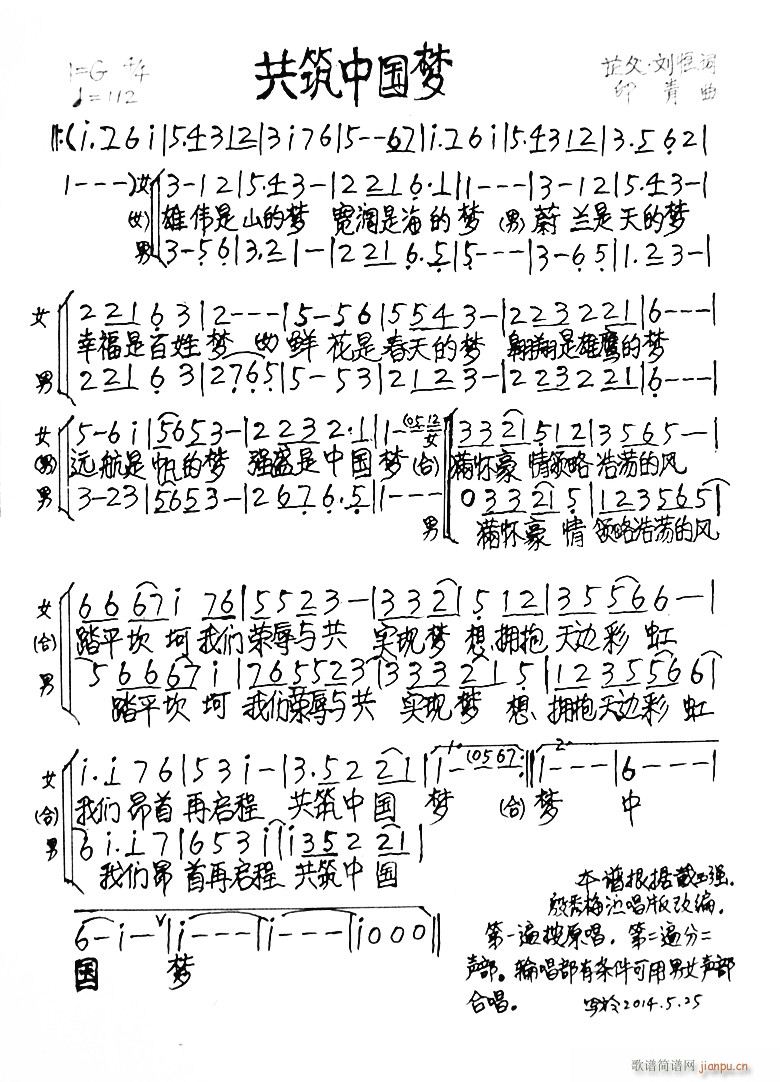 共筑中国梦
1=G 4/4
♩=112
芷父·刘恒词
印青曲
‖:(i.7 6 i|5.4 3 1 2|3 i 7 6|5--6 7|i.7 6 i|5.4 3 1 2|3.5 6 2|
1---)女|3-1 2|5.4 3-|2 2 1 6.1|1---|3-1 2|5.4 3-|
(女)雄伟是山的梦 宽阔是海的梦 (男)蔚兰是天的梦
男|3-5 6|3.2 1-|2 2 1 6.5|5---|3-6 5|1.2 3-|
女|2 2 1 6 3|2---|5-5 6|5 5 4 3-|2 2 3 2 2 1|6---|
幸福是百姓梦 (女)鲜花是春天的梦 翱翔是雄鹰的梦
男|2 2 1 6 3|2 7 6 5|5-5 3|2 1 2 3-|2 2 3 2 2 1|6---|
女|5-6 i|5 6 5 3-|2 2 3 2.1|1-(0 5 1 2 女|3 3 2 1 5 1 2|3 5 6 5--|
(男)远航是帆的梦 强盛是中国梦(合)满怀豪情领略浩荡的风
男|3-2 3|5 6 5 3-|2 6 7 6.5|1---男|0 3 3 2 1 5|1 2 3 5 6 5|
满怀豪情领略浩荡的风
女|6 6 6 7 i 7 6|5 5 2 3-|3 3 2 1 5 1 2|3 5 5 6 6--|
(合)踏平坎坷我们荣辱与共 实现梦想、拥抱天边彩虹
男|5 6 6 6 7 i|7 6 5 5 2 3|3 3 3 2 1 5|1 2 3 5 5 6 6|
踏平坎坷我们荣辱与共 实现梦想、拥抱天边彩虹
女|i.i 7 6|5 3 i-|3.5 2 2 1|1.i--(0 5 6 7:‖2.i---|6---|
(合)我们昂首再启程 共筑中国梦 (合)梦 中
男|6 i.i 7|6 5 3 i|i 3 5 2 2 1|
我们昂首再启程 共筑中国
6-i-∨|i---|i---|i 0 0 0‖
国 梦
本谱根据戴玉强、
殷秀梅演唱版改编。
第一遍按原唱,第二遍分二
声部。轮唱都有条件可用男女声部
合唱。 写于2014.5.25
歌谱简谱网
jianpu.cn